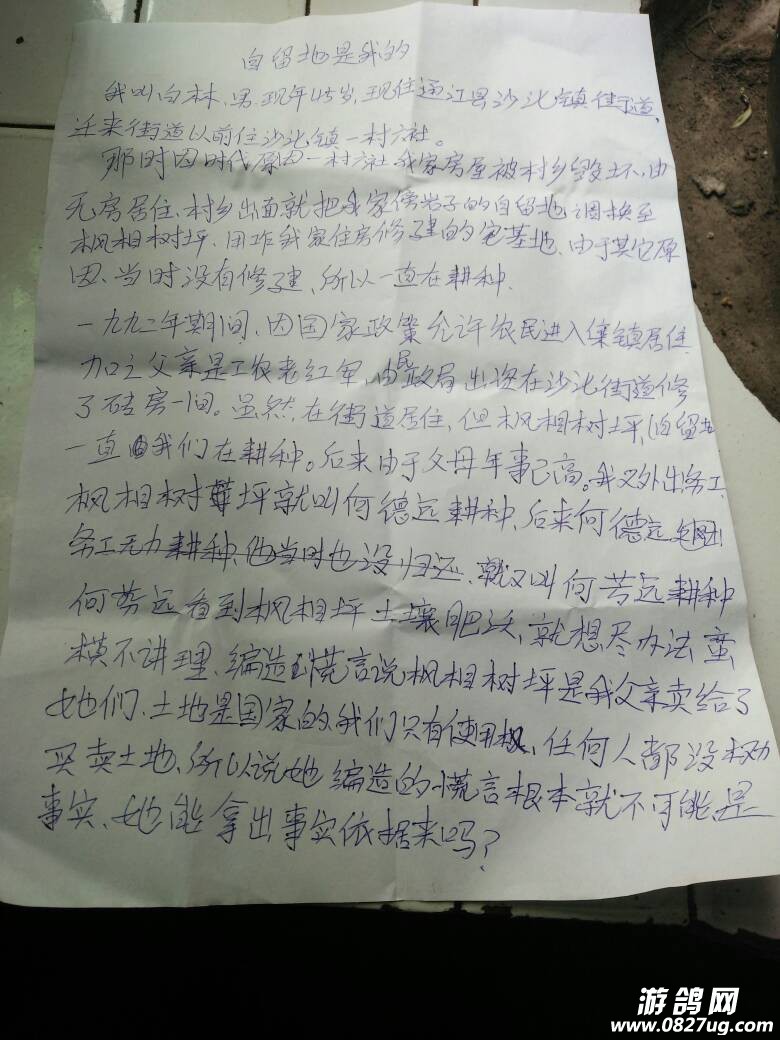 自留地是我的
我叫白林，男，现年45岁，现住通江县沙北镇街道，
迁来街道以前住沙北镇一村六社。
那时因时代原因一村六社我家房屋被村乡毁坏，由
无房居住，村乡出面就把我家傍岩子的自留地调换至
枫相树坪，用作我家住房修建的宅基地，由于其它原
因，当时没有修建，所以一直在耕种，
一九九二年期间，因国家政策允许农民进入集镇居住
加之父亲是工农老红军，由民政局出资在沙北街道修
了砖房一间。虽然在街道居住，但枫相树坪，自留地
一直由我们在耕种。后来由于父母年事已高。我又外出务工，
枫相树坪就叫何德远耕种，后来何德远
务工无力耕种，他当时也没归还，就又叫何芳远耕种
何芳远看到枫相坪土壤肥沃，就想尽办法蛮
横不讲理，编造谎言说枫相树坪是我父亲卖给了
她们，土地是国家的，我们只有使用权，任何人都没权
买卖土地，所以说她编造的谎言根本就不可能是
事实，她能拿出事实依据来吗？
游鸽网
www.0827ug.com